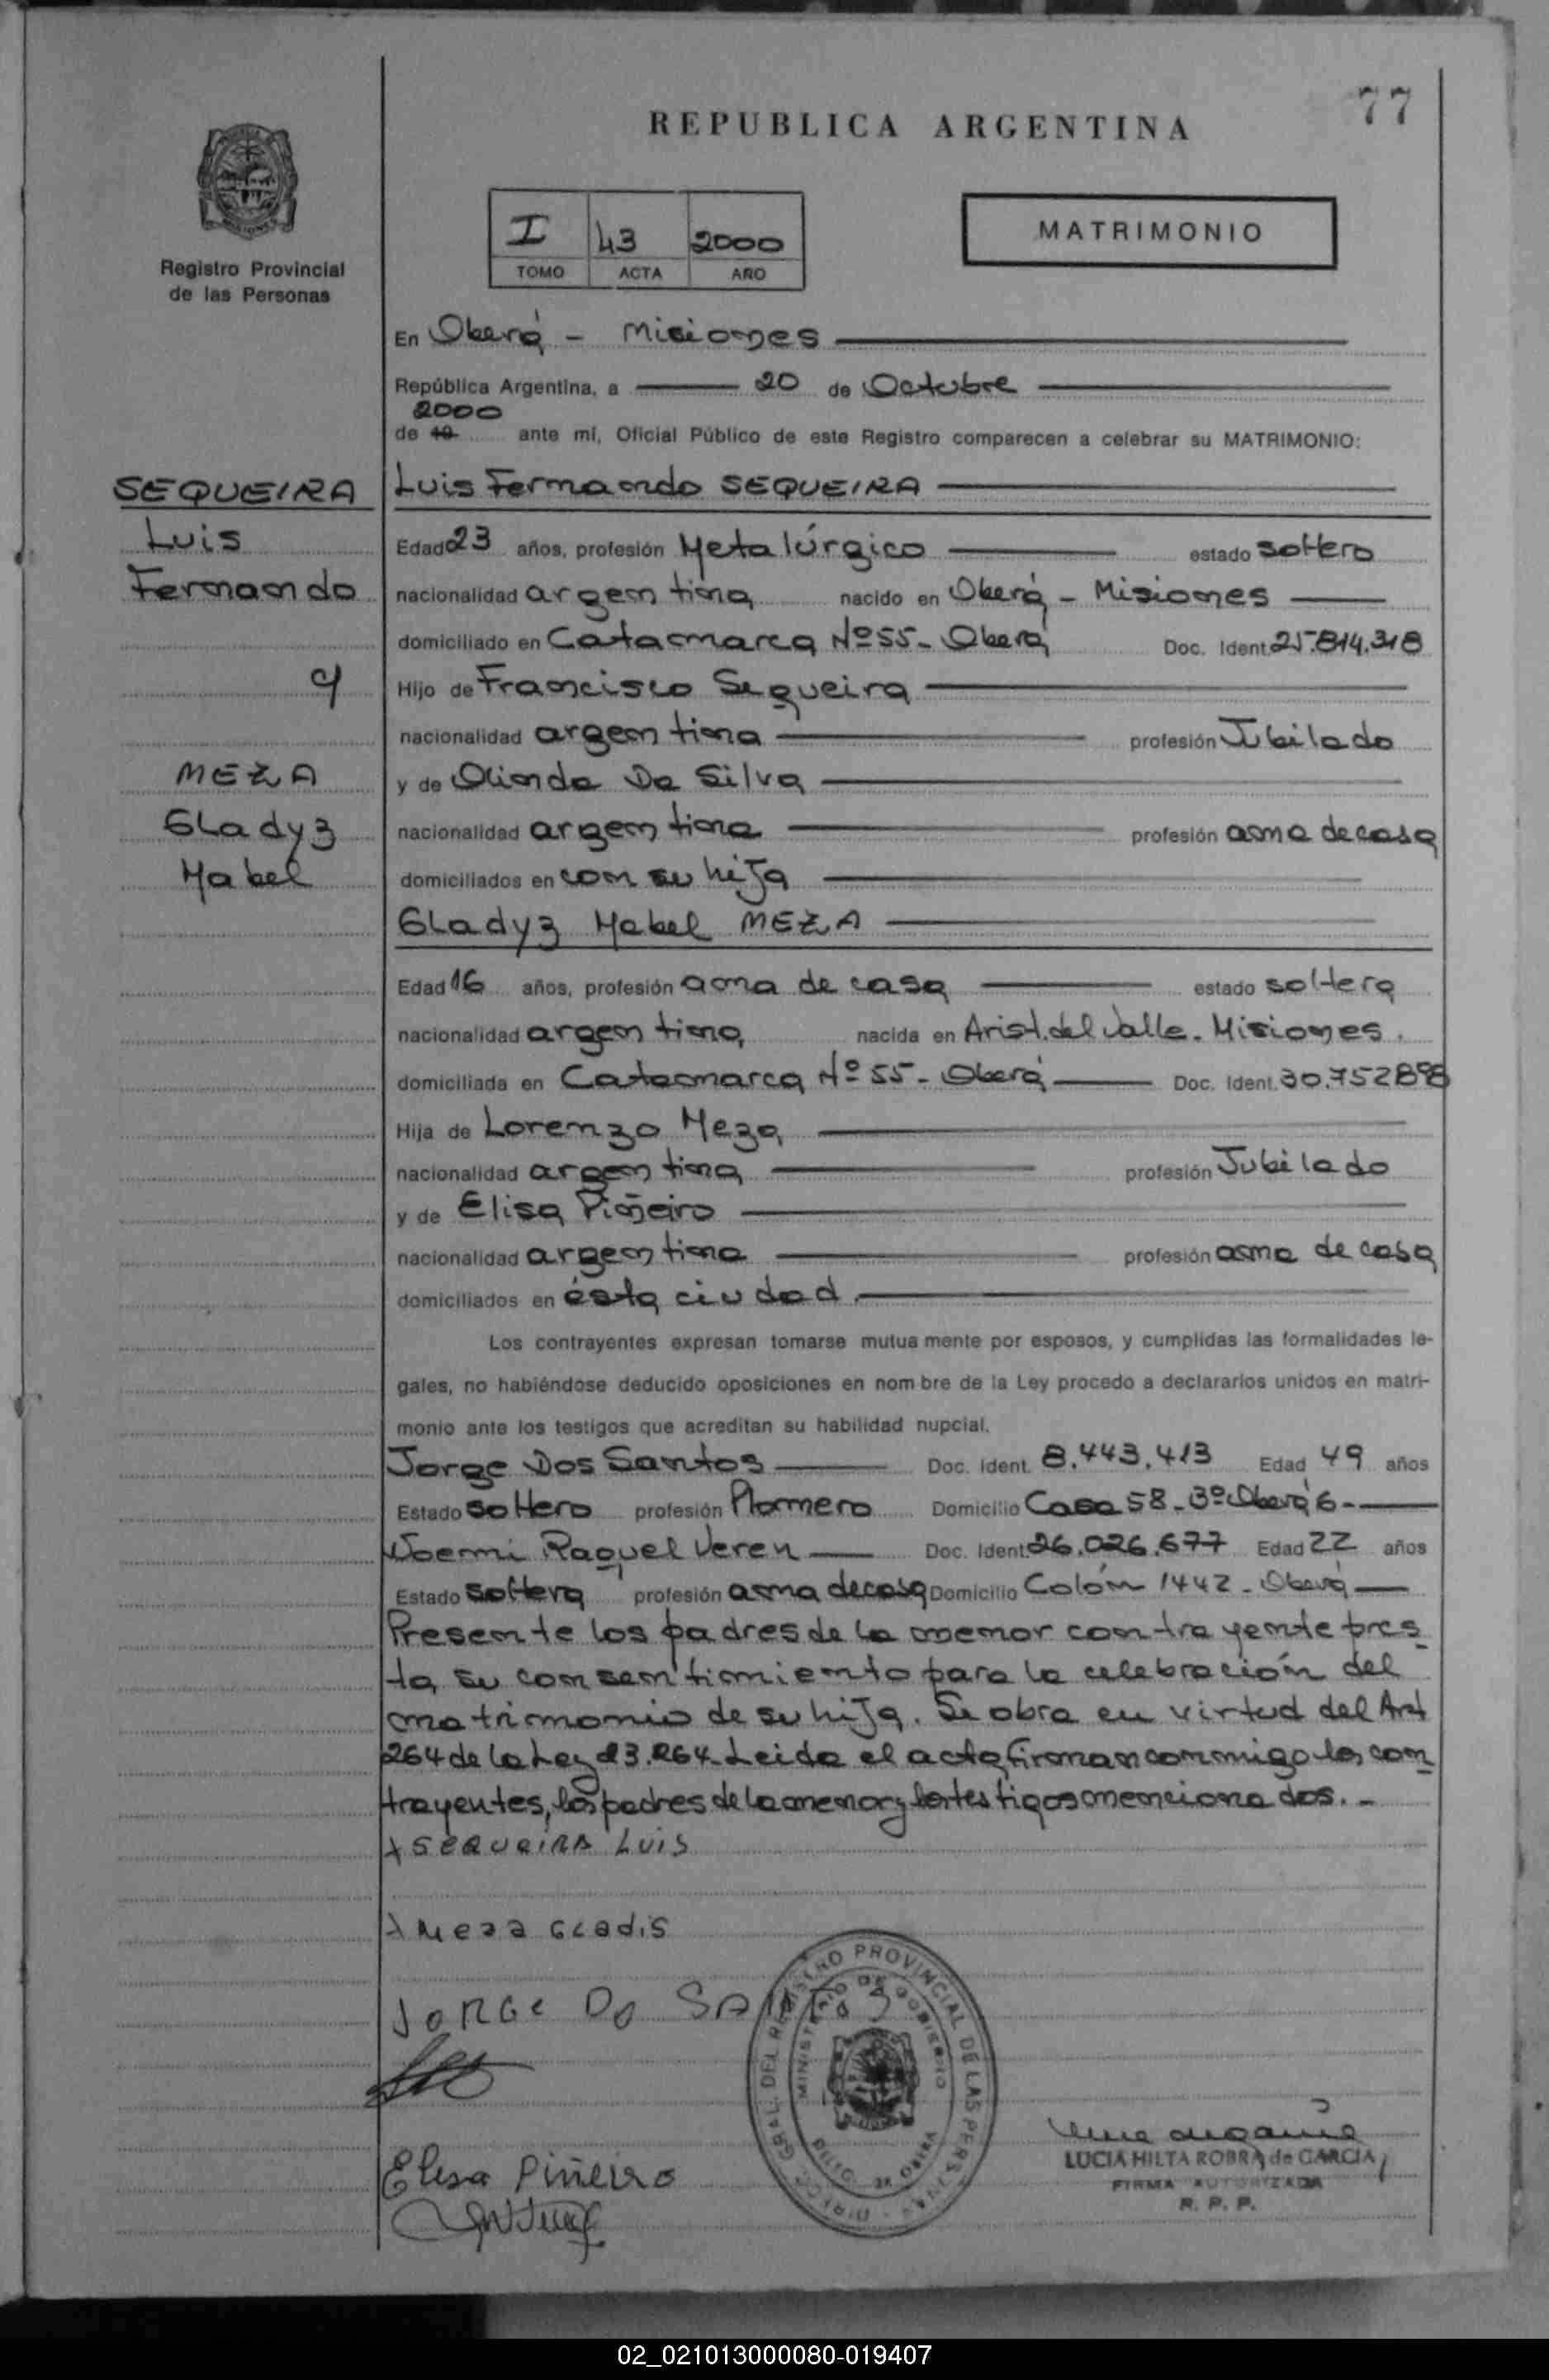 77
REPUBLICA ARGENTINA
I 43 2000
TOMO ACTA AÑO
MATRIMONIO
Registro Provincial
de las Personas
En Oberá - Misiones
República Argentina, a 20 de Octubre
2000
de 19 ante mí, Oficial Público de este Registro comparecen a celebrar su MATRIMONIO:
SEQUEIRA
Luis
Fernando
c/
MEZA
Gladyz
Mabel
Luis Fernando SEQUEIRA
Edad 23 años, profesión Metalúrgico estado soltero
nacionalidad argentina nacido en Oberá - Misiones
domiciliado en Catamarca Nº 55 - Oberá Doc. Ident. 25.814.318
Hijo de Francisco Sequeira
nacionalidad argentina profesión Jubilado
y de Olinda Da Silva
nacionalidad argentina profesión ama de casa
domiciliados en con su hija
Gladyz Mabel MEZA
Edad 16 años, profesión ama de casa estado soltera
nacionalidad argentina nacida en Arist. del Valle - Misiones.
domiciliada en Catamarca Nº 55 - Oberá Doc. Ident. 30.752898
Hija de Lorenzo Meza
nacionalidad argentina profesión Jubilado
y de Elisa Piñeiro
nacionalidad argentina profesión ama de casa
domiciliados en ésta ciudad.
Los contrayentes expresan tomarse mutua mente por esposos, y cumplidas las formalidades le-
gales, no habiéndose deducido oposiciones en nom bre de la Ley procedo a declararlos unidos en matri-
monio ante los testigos que acreditan su habilidad nupcial.
Jorge Dos Santos Doc. Ident. 8.443.413 Edad 49 años
Estado soltero profesión Plomero Domicilio Casa 58 - 3º Oberá 6 -
Noemi Raquel Veren Doc. Ident. 26.026.677 Edad 22 años
Estado soltera profesión ama de casa Domicilio Colón 1442 - Oberá
Presente los padres de la menor contrayente pres-
ta su consentimiento para la celebración del
matrimonio de su hija. Se obra en virtud del Art
264 de la Ley 23.264. Leida el acta firman conmigo los con-
trayentes, los padres de la menor y los testigos mencionados. -
x SEQUEIRA LUIS
x Meza Gladis
JORGE Do SANTOS
Elisa Piñeiro
DIREC. GRAL. DEL REGISTRO PROVINCIAL DE LAS PERSONAS
MINISTERIO DE GOBIERNO
DELEG. DE OBERA
LUCIA HILTA ROBRA de GARCIA
FIRMA AUTORIZADA
R. P. P.
02_021013000080-019407